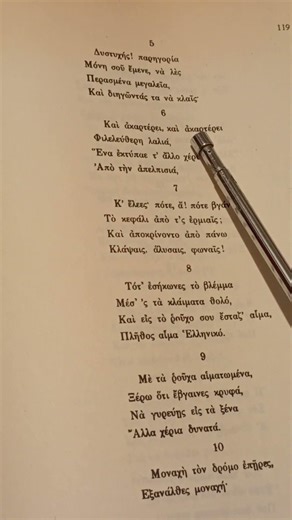 119
5
Δυστυχής! παρηγορία
Μόνη σοῦ ἔμενε, νὰ λὲς
Περασμένα μεγαλεῖα,
Καὶ διηγῶντάς τα νὰ κλαῖς·
6
Καὶ ἀκαρτέρει, καὶ ἀκαρτέρει
Φιλελεύθερη λαλιά,
Ἕνα ἐκτύπαε τ' ἄλλο χέρι
Ἀπὸ τὴν ἀπελπισιά,
7
Κ' ἔλεες· πότε, ἄ! πότε βγάν
Τὸ κεφάλι ἀπὸ τ'ς ἐρμιαῖς;
Καὶ ἀποκρίνοντο ἀπὸ πάνω
Κλάψαις, ἅλυσαις, φωναῖς!
8
Τότ' ἐσήκωνες τὸ βλέμμα
Μέσ' 'ς τὰ κλάιματα θολό,
Καὶ εἰς τὸ ῥοῦχο σου ἔσταζ' αἷμα,
Πλῆθος αἷμα Ἑλληνικό.
9
Μὲ τὰ ῥοῦχα αἱματωμένα,
Ξέρω ὅτι ἔβγαινες κρυφά,
Νὰ γυρεύῃς εἰς τὰ ξένα
Ἄλλα χέρια δυνατά.
10
Μοναχὴ τὸν δρόμο ἐπῆρες,
Ἐξανάλθες μοναχή·